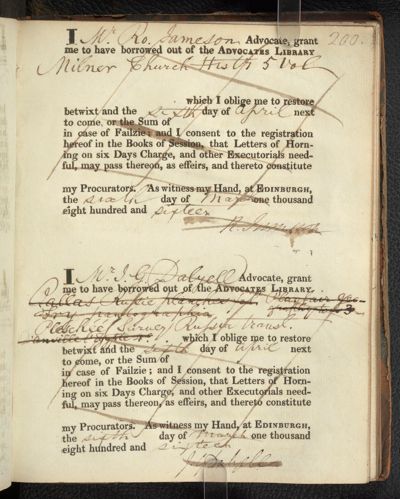 200.
I Mr Ro. Jameson Advocate, grant
me to have borrowed out of the ADVOCATES LIBRARY
Milner Church Hist 5 Vol
which I oblige me to restore
betwixt and the sixth day of April next
to come, or the Sum of
in case of Failzie; and I consent to the registration
hereof in the Books of Session, that Letters of Horn-
ing on six Days Charge, and other Executorials need-
ful, may pass thereon, as effeirs, and thereto constitute
my Procurators. As witness my Hand, at EDINBURGH,
the sixth day of March one thousand
eight hundred and sixteen
R. Jameson
I Mr J. G. Dalyell Advocate, grant
me to have borrowed out of the ADVOCATES LIBRARY
Pallas
which I oblige me to restore
betwixt and the sixth day of April next
to come, or the Sum of
in case of Failzie; and I consent to the registration
hereof in the Books of Session, that Letters of Horn-
ing on six Days Charge, and other Executorials need-
ful, may pass thereon, as effeirs, and thereto constitute
my Procurators. As witness my Hand, at EDINBURGH,
the sixth day of March one thousand
eight hundred and sixteen
J G Dalyell